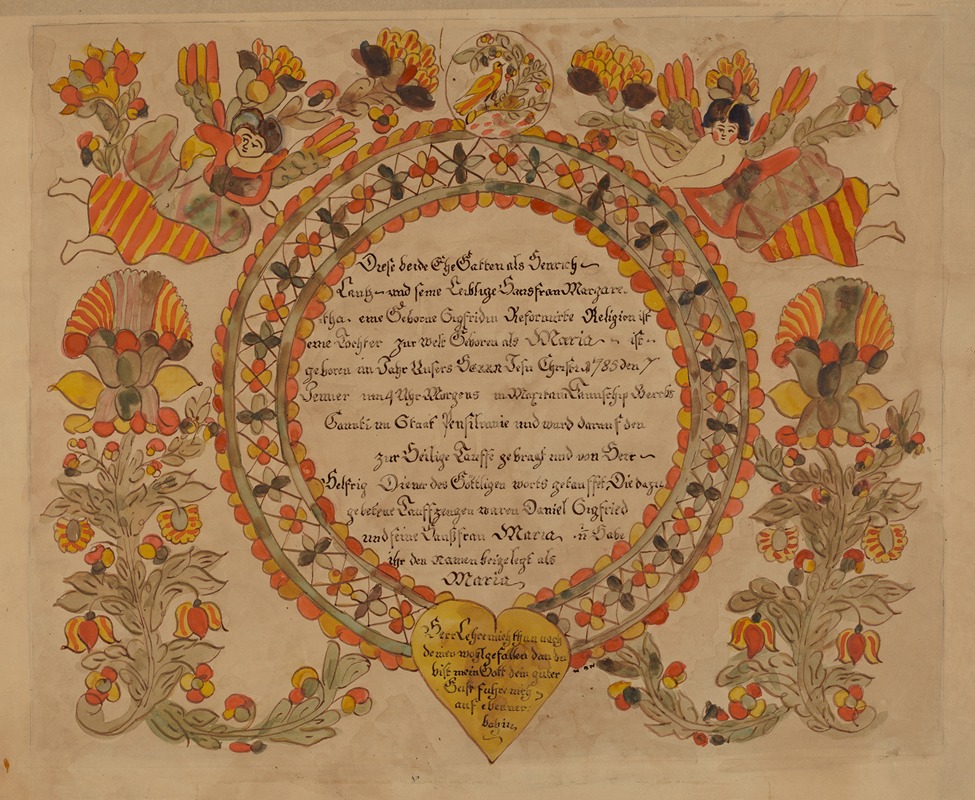 Diese beide Ehe Gatten als Henrich
Lantz und seine Eeiblige Hausfrau Margare
tha eine Geborne Sigfridin Reformirte Religion ist
eine Tochter zur welt Geboren als Maria ist
geboren im Jahr Unsers HERRN Jesu Christi 1785 den 7
Jenner um 4 Uhr Morgens in Maxitani Taunschip Berrks
Caunti im Staat Pensilvanie und ward darauf den
zur Heilige Tauffe gebragt und von Herr
Helfrig Diener des Göttligen worts getauffet, Die dazu
gebetene Tauffzeugen waren Daniel Sigfried
und seine Haußfrau Maria u Habe
ihr den namen beigelegt als
Maria
Herr Lehre mich thun nach
deinen wohlgefallen dan du
bist mein Gott dein guter
Geist führe mich
auf ebener
bahn